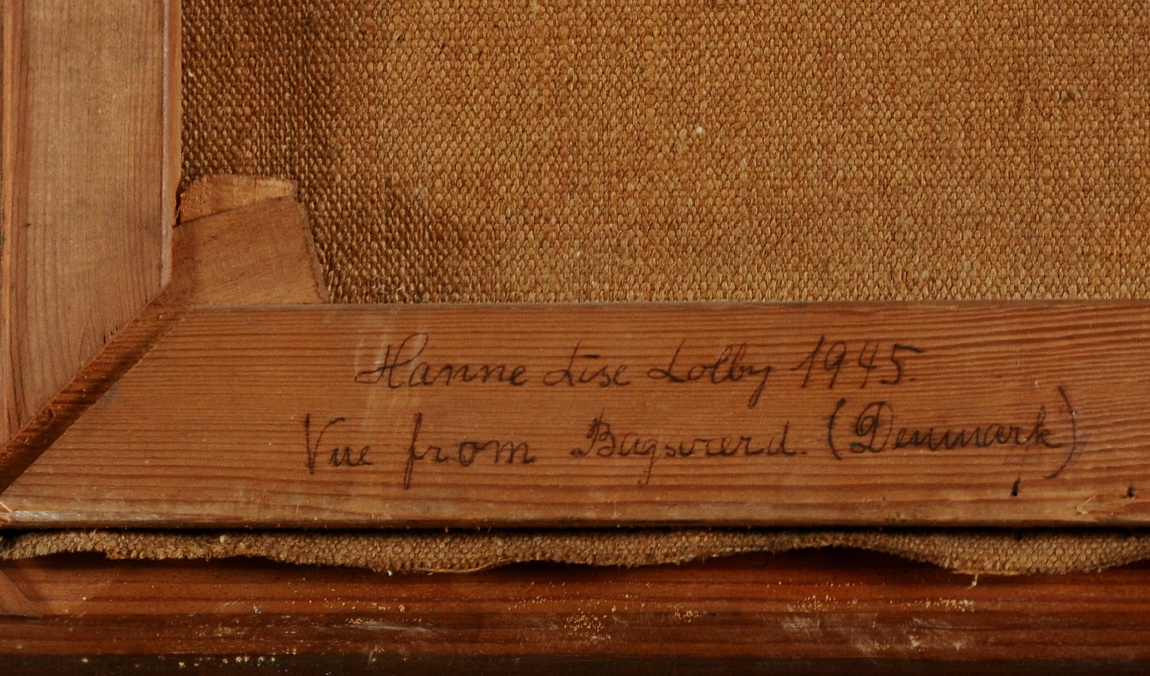 Hanne Lise Lolby 1945.
Vue from Bagsvrerd. (Denmark)